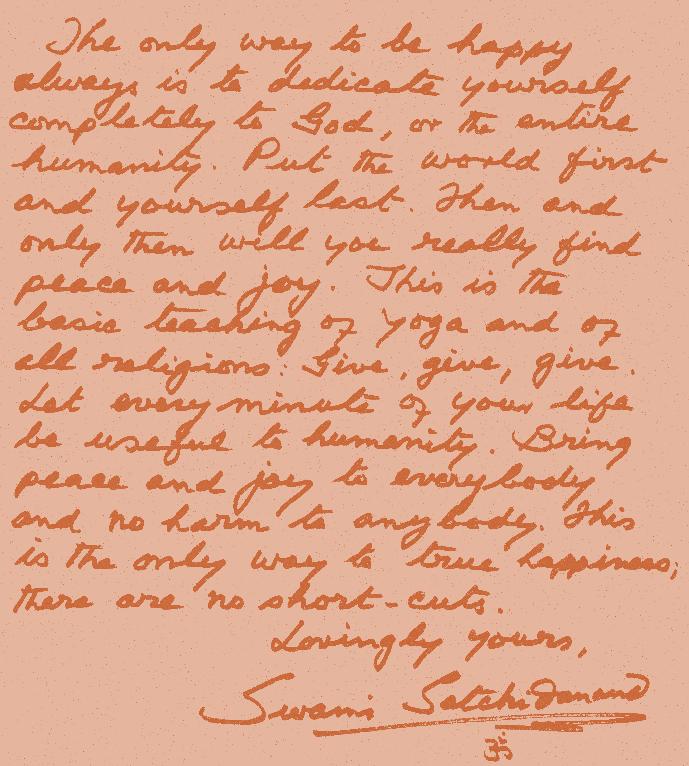 The only way to be happy
always is to dedicate yourself
completely to God, or the entire
humanity. Put the world first
and yourself last. Then and
only then will you really find
peace and joy. This is the
basic teaching of Yoga and of
all religions: Give, give, give.
Let every minute of your life
be useful to humanity. Bring
peace and joy to everybody
and no harm to anybody. This
is the only way to true happiness;
there are no short-cuts.
Lovingly yours,
Swami Satchidananda
ॐ